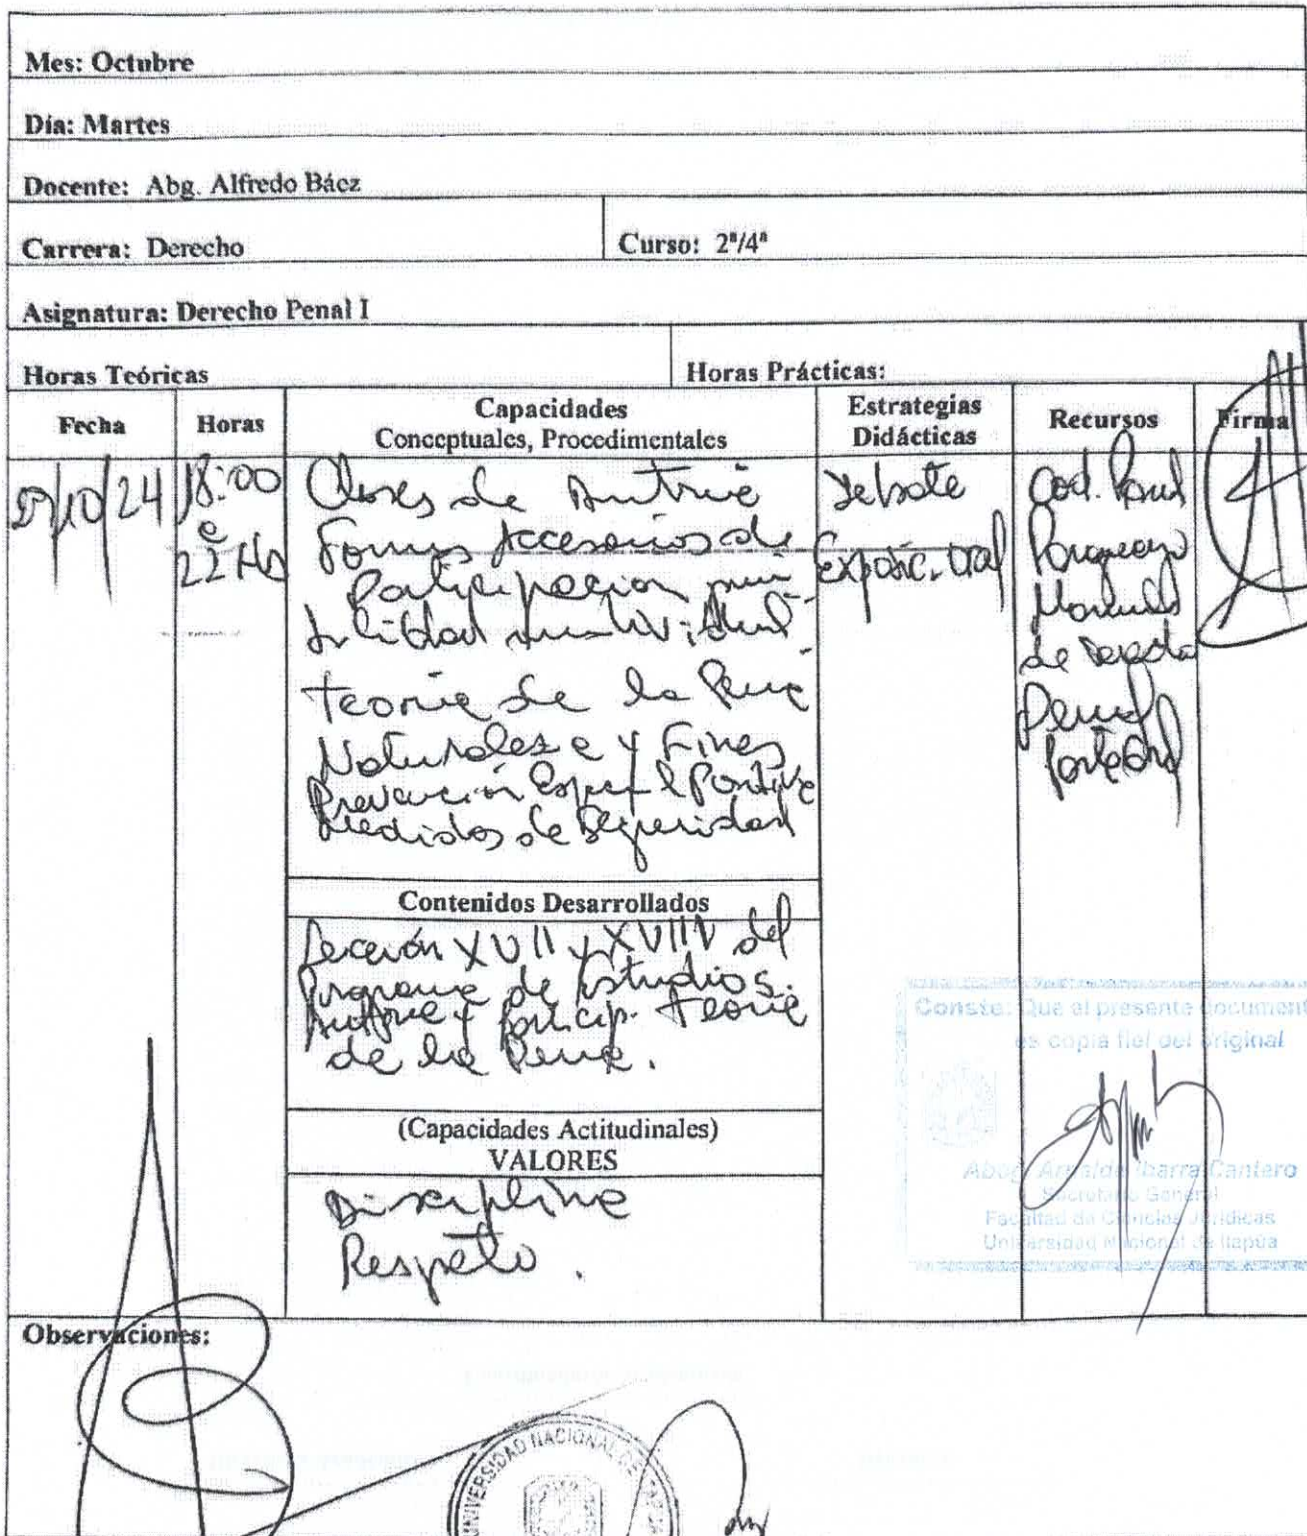 Mes: Octubre
Día: Martes
Docente: Abg. Alfredo Báez
Carrera: Derecho
Curso: 2ª/4ª
Asignatura: Derecho Penal I
Horas Teóricas
Horas Prácticas:
Fecha
Horas
Capacidades
Conceptuales, Procedimentales
Estrategias
Didácticas
Recursos
Firma
/10/24
18:00
a
22 Hs
Clases de Autoría
Formas Accesorias de
Participación
Teoría de la Pena
Naturaleza y Fines
Prevención Especial Positiva
Medidas de Seguridad
Debate
Exposic. Oral
Cod. Penal
Paraguayo
Manual
de Derecho
Penal
Contenidos Desarrollados
Lección XVII y XVIIV del
Programa de Estudios.
Autoría y particip. Teoría
de la Pena.
(Capacidades Actitudinales)
VALORES
Disciplina
Respeto.
Conste: Que el presente document
es copia fiel del original
Abog. Arnaldo Ibarra Cantero
Secretario General
Facultad de Ciencias Jurídicas
Universidad Nacional de Itapúa
Observaciones:
UNIVERSIDAD NACIONAL DE